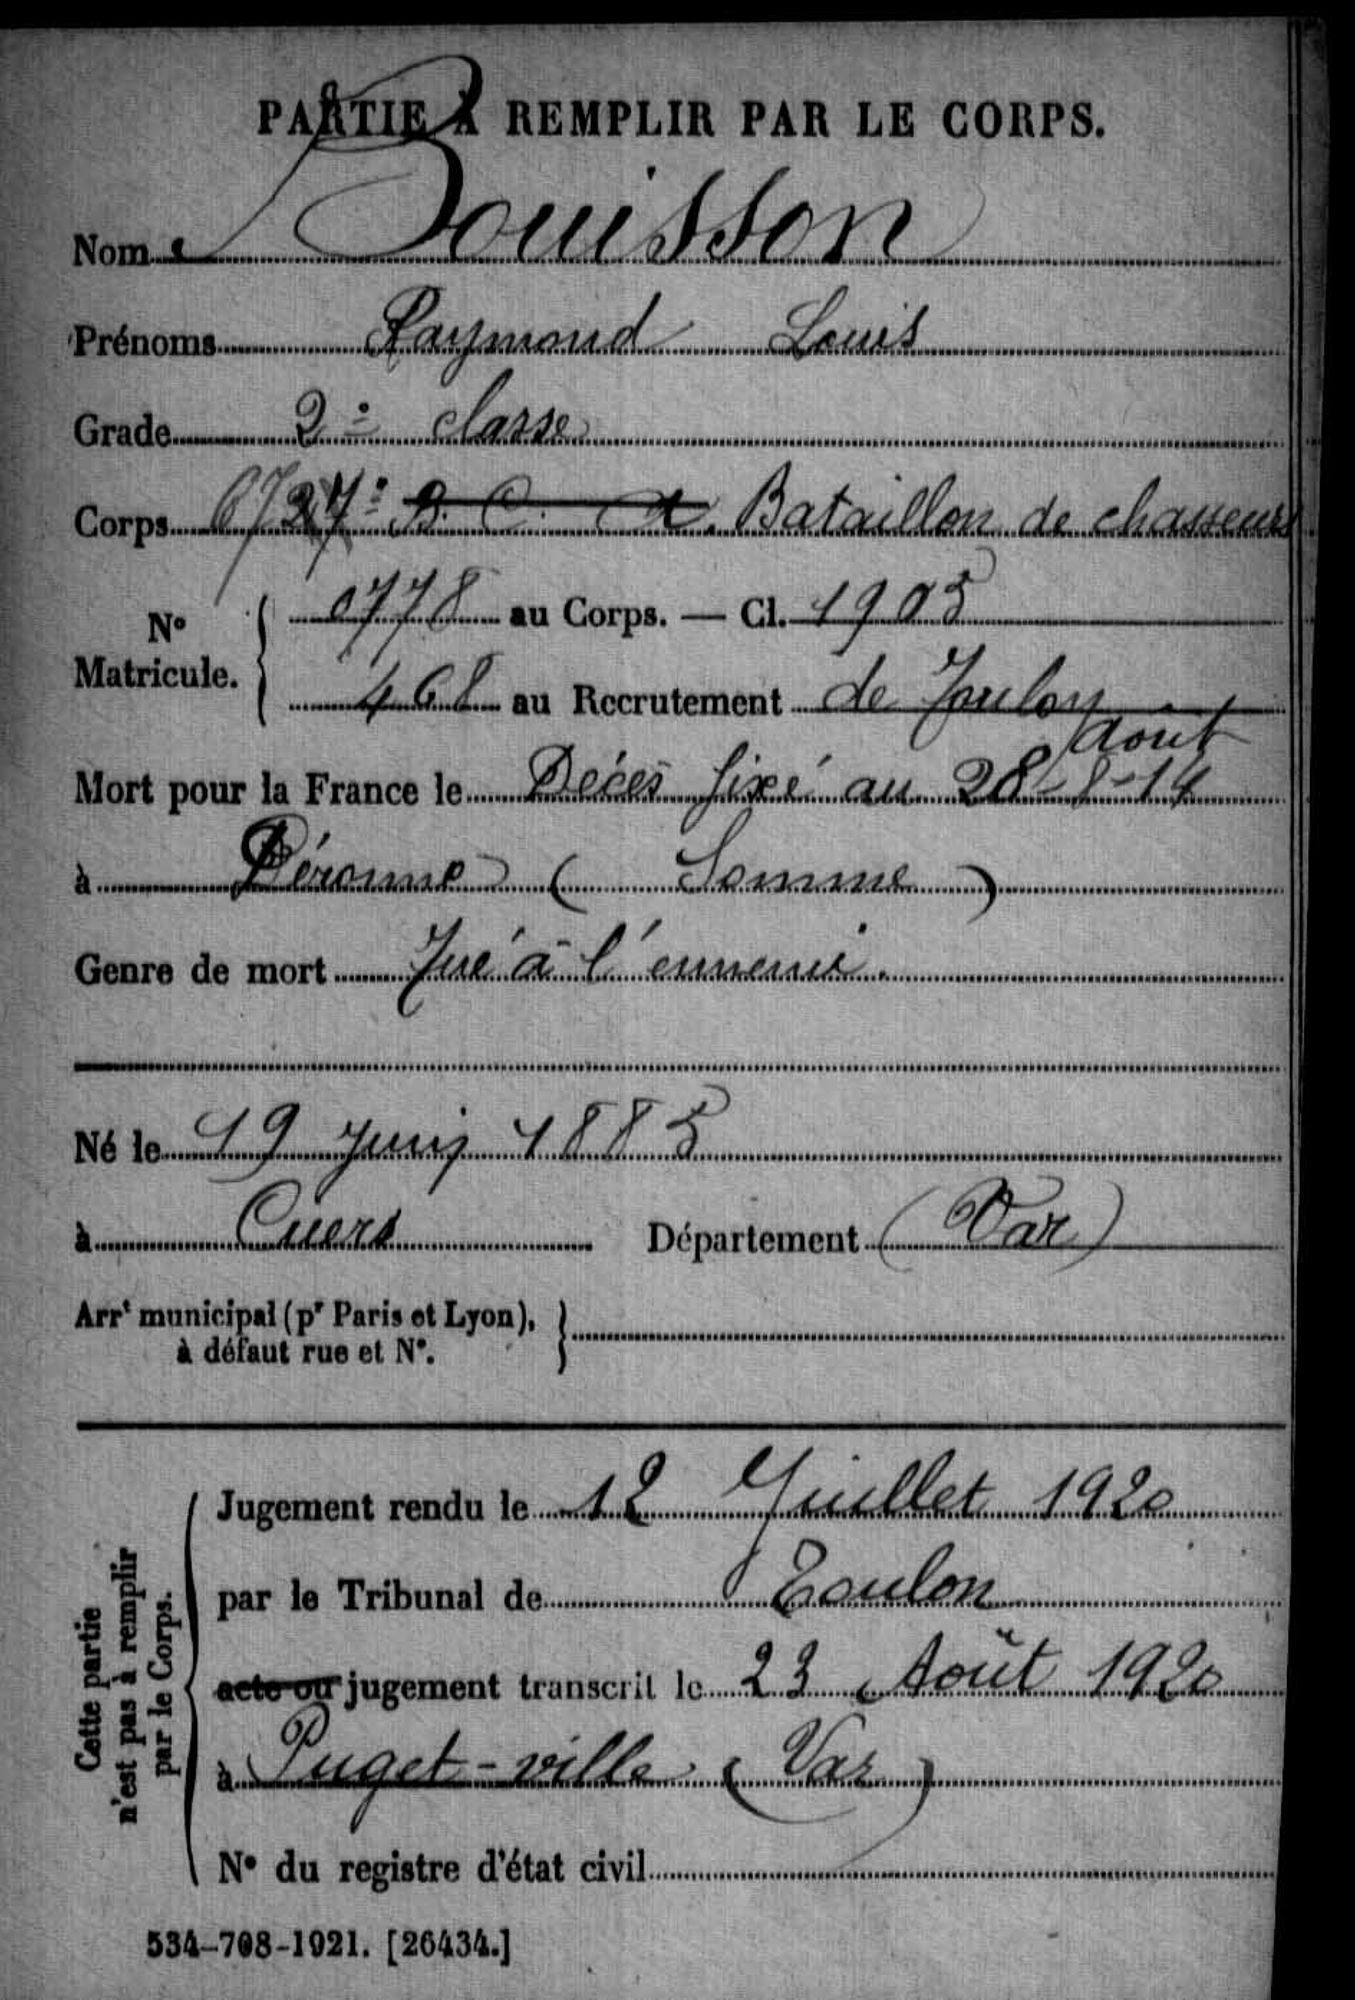 PARTIE À REMPLIR PAR LE CORPS.
Nom Bouisson
Prénoms Raymond Louis
Grade 2e classe
Corps 67 27e B. C. A. Bataillon de chasseurs
No Matricule. { 0778 au Corps. — Cl. 1905
468 au Recrutement de Toulon
août
Mort pour la France le Décès fixé au 28-8-14
à Péronne (Somme)
Genre de mort Tué à l'ennemi.
Né le 19 Juin 1885
à Cuers Département (Var)
Arrt municipal (pr Paris et Lyon), }
à défaut rue et No.
Cette partie n'est pas à remplir par le Corps.
Jugement rendu le 12 Juillet 1920
par le Tribunal de Toulon
acte ou jugement transcrit le 23 Août 1920
à Puget-ville (Var)
No du registre d'état civil
534-708-1921. [26434.]